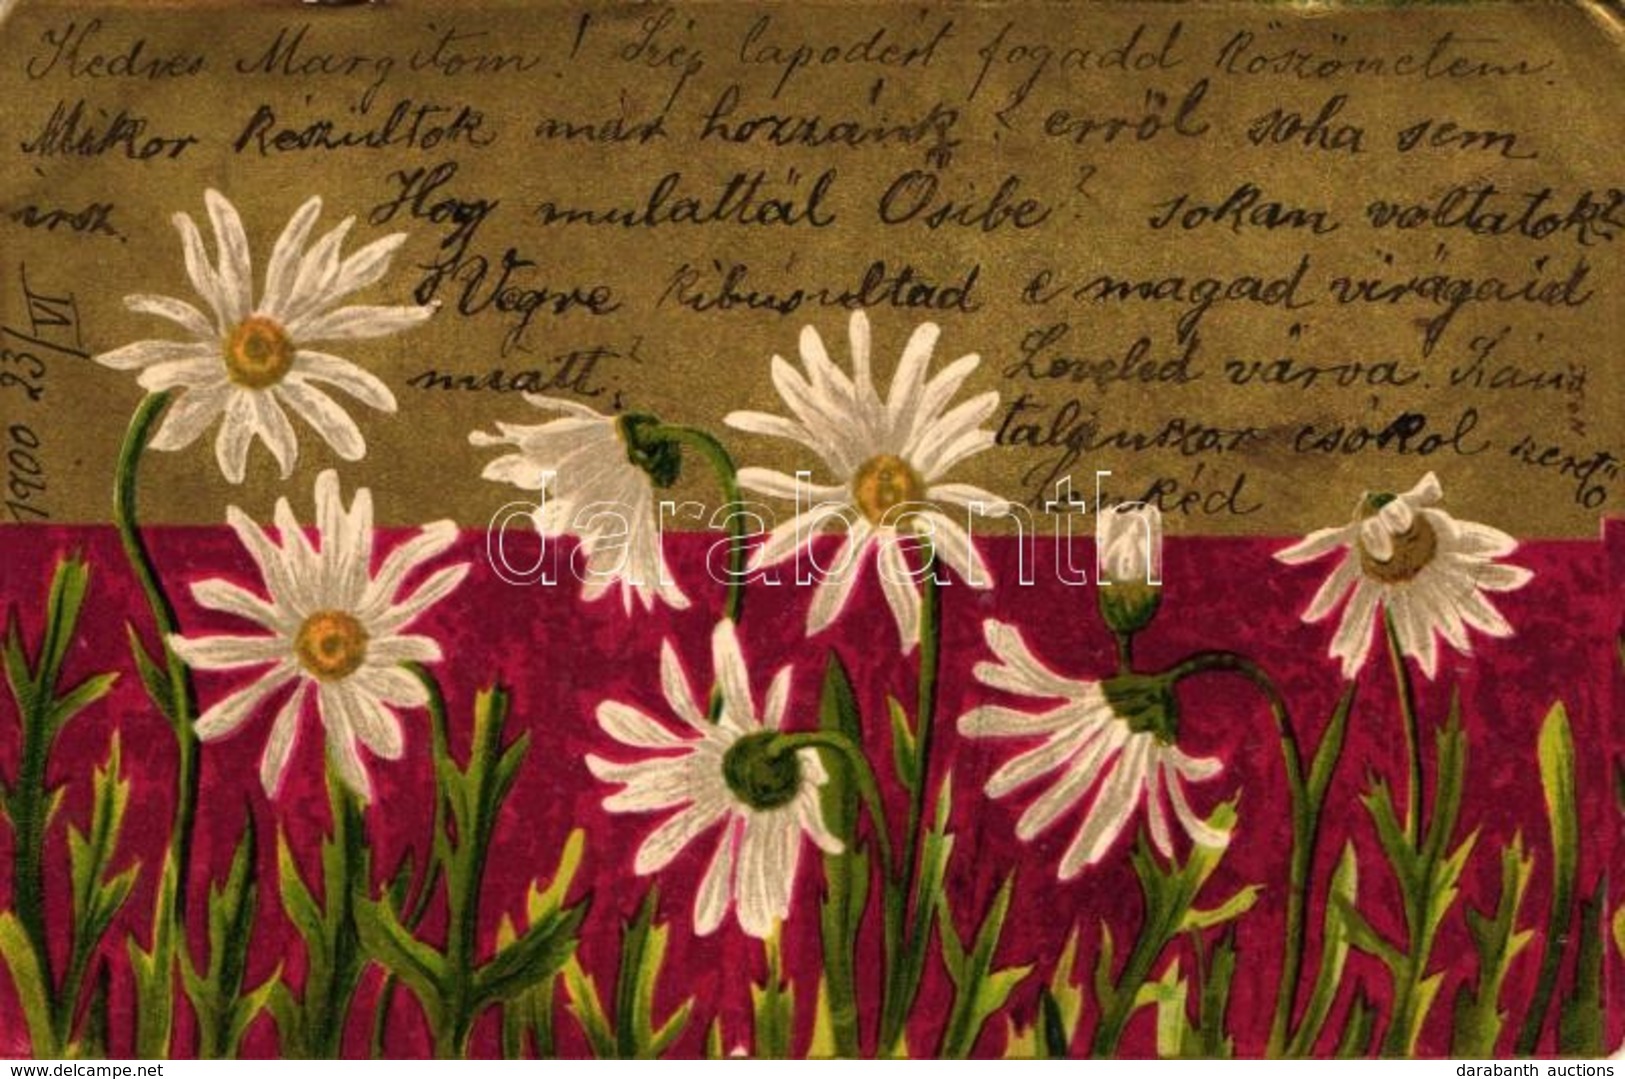 Kedves Margitom! Szép lapodért fogadd köszönetem.
Mikor készültok már hozzánk? erről soha sem
irsz. Hogy mulattál Ősibe? sokan voltatok?
Vegre kibúsultad e magad virágaid
miatt? Leveled várva.
talanszor csókol szerető
1900 23/VI
darabanth
www.delcampe.net
darabanth auctions